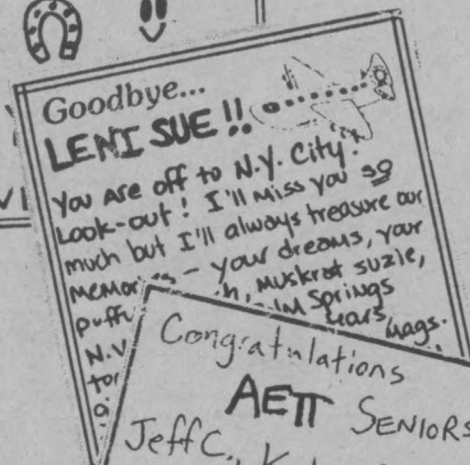 Goodbye...
LENI SUE!!
You are off to N.Y. City!
Look-out! I'll miss you so
much but I'll always treasure our
- your dreams, your
muskrat suzie,
Springs
N.Y
years, hags.
Congratulations
AEΠ SENIORS
Jeff C.,